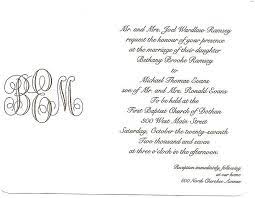 BEM
Mr. and Mrs. Joel Wardlaw Ramsey
request the honour of your presence
at the marriage of their daughter
Bethany Brooke Ramsey
to
Michael Thomas Evans
son of Mr. and Mrs. Ronald Evans
To be held at the
First Baptist Church of Dothan
300 West Main Street
Saturday, October the twenty-seventh
Two thousand and seven
at three o'clock in the afternoon.
Reception immediately following
at our home
800 North Cherokee Avenue